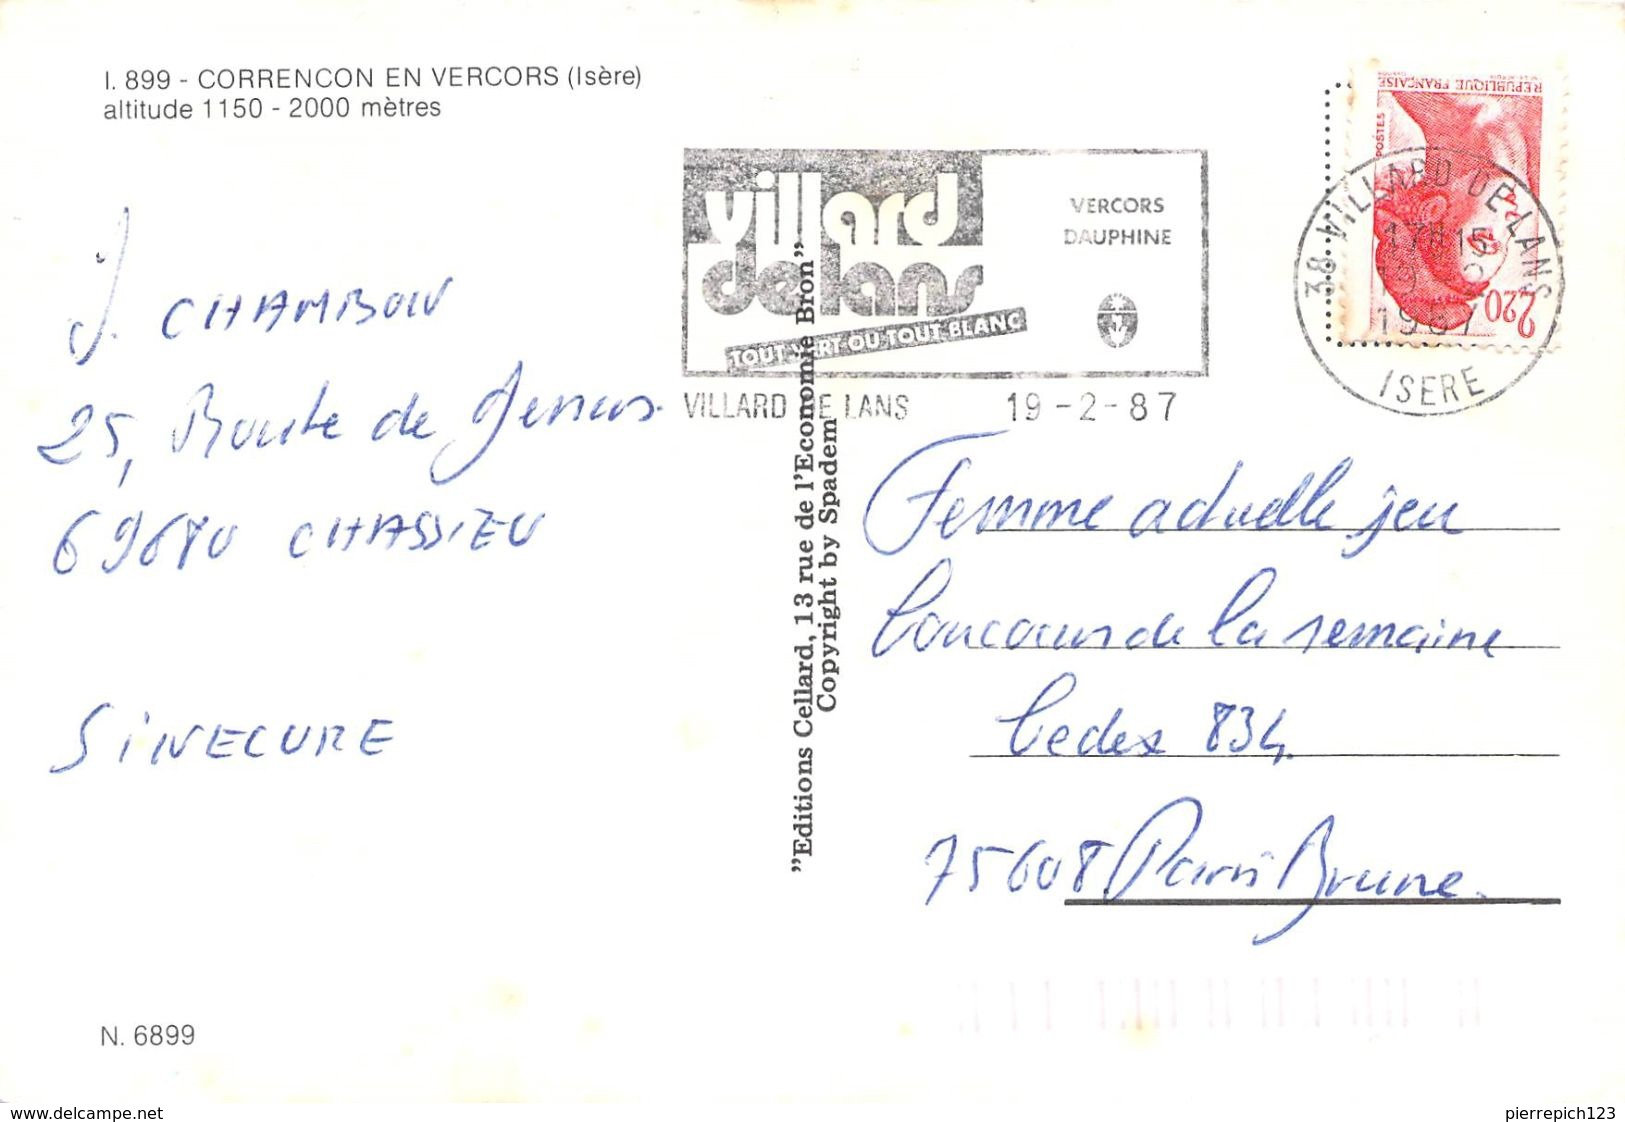 I. 899 - CORRENCON EN VERCORS (Isère)
altitude 1150 - 2000 mètres
villard
de lans
TOUT VERT OU TOUT BLANC
VERCORS
DAUPHINE
VILLARD DE LANS 19-2-87
REPUBLIQUE FRANÇAISE
POSTES
2,20
38 VILLARD DE LANS
17H15
1987
ISERE
J. CHAMBON
25, Route de Genas.
69680 CHASSIEU
SINECURE
"Editions Cellard, 13 rue de l'Economie Bron"
Copyright by Spadem
Femme actuelle jeu
Concours de la semaine
Cedex 834
75608 Paris Brune.
N. 6899
www.delcampe.net
pierrepich123